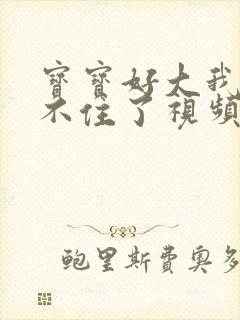 寶寶好大我
不住了視頻
鮑里斯費奧多